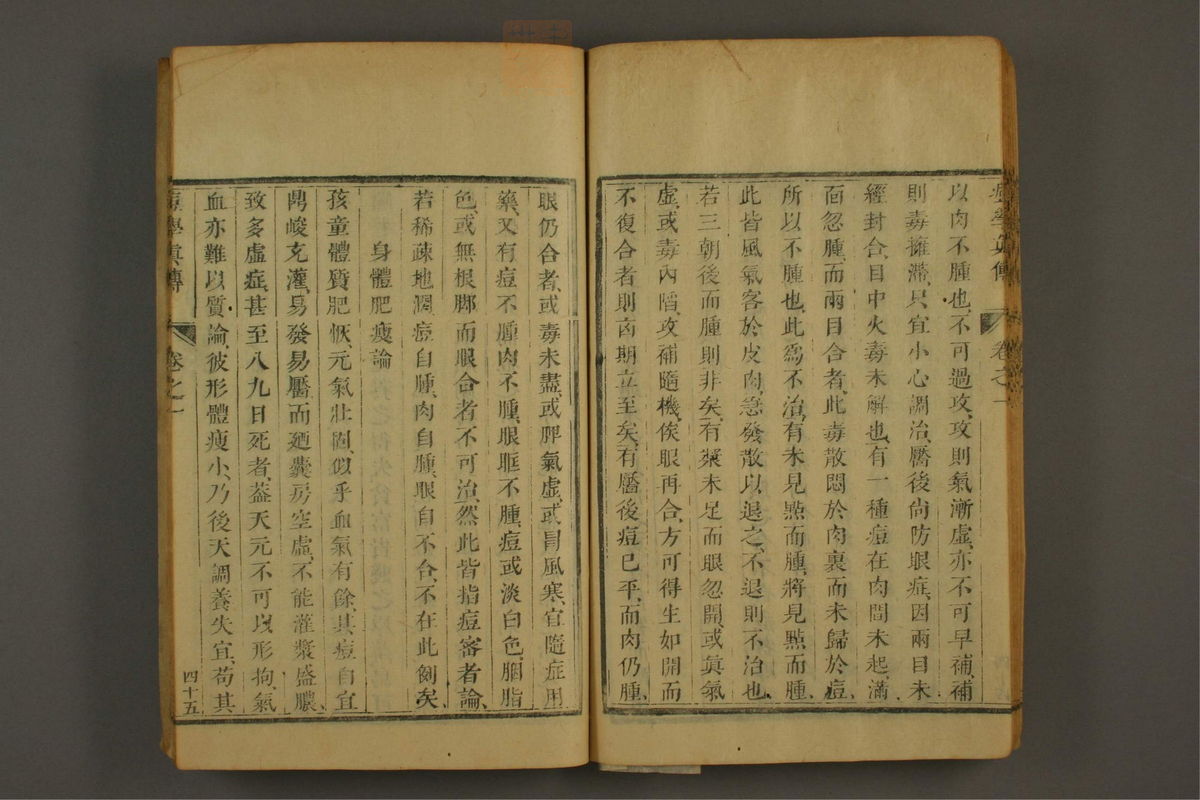 痘學眞傳
卷之一
以肉不腫也、不可過攻、攻則氣漸虛、亦不可早補、補
則毒擁滯、只宜小心調治、靨後尚防眼症、因兩目未
經封合、目中火毒未解也、有一種痘在肉間未起、滿
面忽腫、而兩目合者、此毒散悶於肉裏而未歸於痘
所以不腫也、此爲不治、有未見點而腫、將見點而腫
此皆風氣客於皮肉、急發散以退之、不退則不治也
若三朝後而腫則非矣、有漿未足而眼忽開、或眞氣
虛、或毒內陷、攻補隨機、俟眼再合、方可得生、如開而
不復合者、則凶期立至矣、有靨後痘已平、而肉仍腫、
眼仍合者、或毒未盡、或脾氣虛、或冒風寒、宜隨症用
藥、又有痘不腫、肉不腫、眼眶不腫、痘或淡白色、胭脂
色、或無根脚、而眼合者、不可治、然此皆指痘密者論、
若稀疎地濶、痘自腫、肉自腫、眼自不合、不在此例矣
身體肥瘦論
孩童體質肥 、元氣壯固、似乎血氣有餘、其痘自宜
易發易靨、而廼囊房空虛、不能灌漿盛膿、
致多虛症、甚至八九日死者、蓋天元不可以形拘、氣
血亦難以質論、彼形體瘦小、乃後天調養失宜、苟其
痘學眞傳
卷之一
四十五